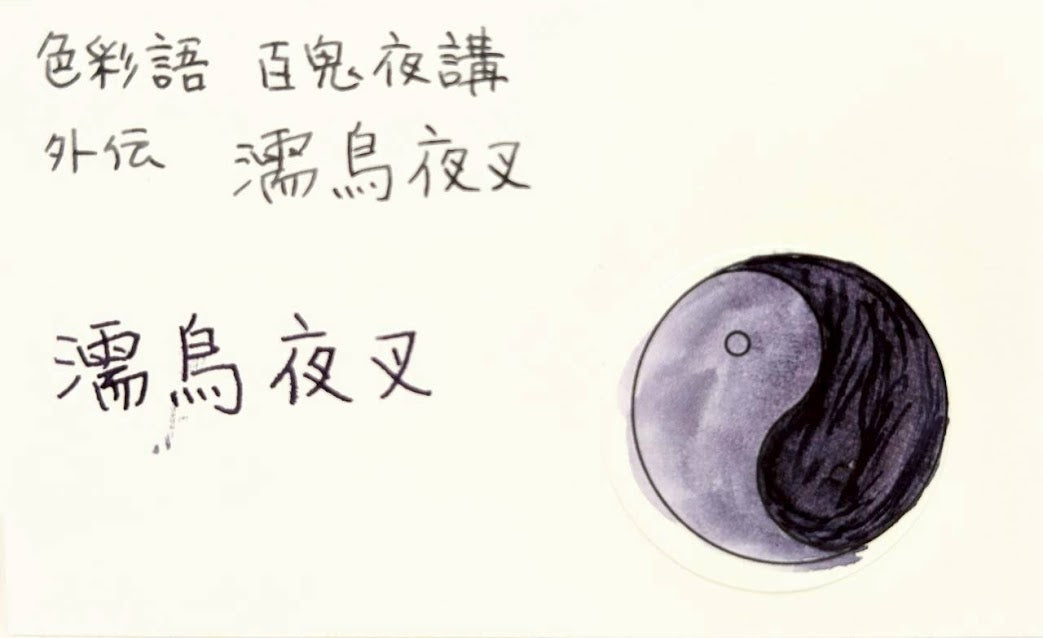 色彩語 百鬼夜講
外伝 濡烏夜叉
濡烏夜叉